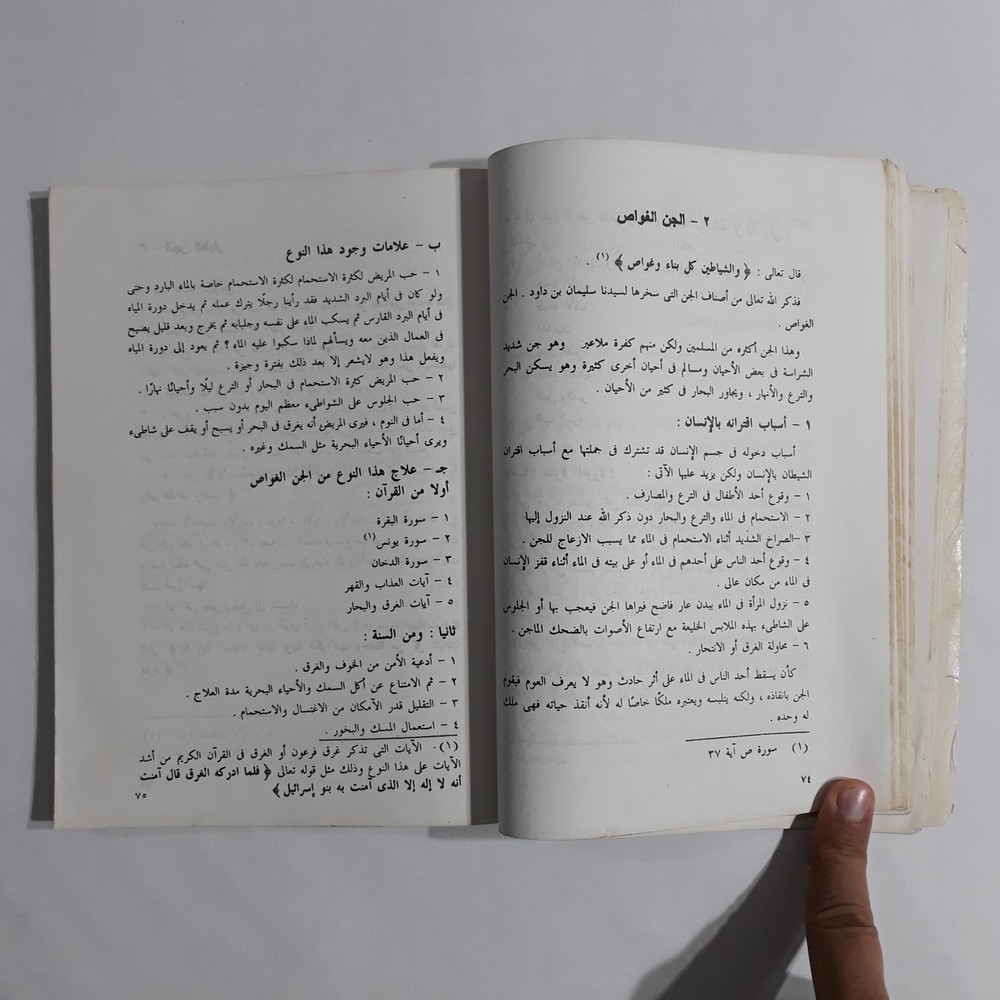 ٢ - الجن الغواص
قال تعالى : ﴿ والشياطين كل بناء وغواص ﴾ (١) .
فذكر الله تعالى من أصناف الجن التى سخرها لسيدنا سليمان بن داود . الجن
الغواص .
وهذا الجن أكثره من المسلمين ولكن منهم كفرة ملاعير وهو جن شديد
الشراسة فى بعض الأحيان ومسالم فى أحيان أخرى كثيرة وهو يسكن البحر
والترع والأنهار ، ويجاور البحار فى كثير من الأحيان .
١ - أسباب اقترانه بالإنسان :
أسباب دخوله فى جسم الإنسان قد تشترك فى جملتها مع أسباب اقتران
الشيطان بالإنسان ولكن يزيد عليها الآتى :
١ - وقوع أحد الأطفال فى الترع والمصارف .
٢ - الاستحمام فى الماء والترع والبحار دون ذكر الله عند النزول إليها
٣ -الصراخ الشديد أثناء الاستحمام فى الماء مما يسبب الازعاج للجن .
٤ - وقوع أحد الناس على أحدهم فى الماء أو على بيته فى الماء أثناء قفز الإنسان
فى الماء من مكان عالى .
٥ - نزول المرأة فى الماء ببدن عار فاضح فيراها الجن فيعجب بها أو الجلوس
على الشاطىء بهذه الملابس الخليعة مع ارتفاع الأصوات بالضحك الماجن .
٦ - محاولة الغرق أو الانتحار .
كأن يسقط أحد الناس فى الماء على أثر حادث وهو لا يعرف العوم فيقوم
الجن بانقاذه ، ولكنه يتلبسه ويعتبره ملكًا خاصًا له لأنه أنقذ حياته فهى ملك
له وحده .
(١) سورة ص آية ٣٧
٧٤
ب - علامات وجود هذا النوع
١ - حب المريض لكثرة الاستحمام لكثرة الاستحمام خاصة بالماء البارد وحتى
ولو كان فى أيام البرد الشديد فقد رأينا رجلًا يترك عمله ثم يدخل دورة المياه
فى أيام البرد القارس ثم يسكب الماء على نفسه وجلبابه ثم يخرج وبعد قليل يصيح
فى العمال الذين معه ويسألهم لماذا سكبوا عليه الماء ؟ ثم يعود إلى دورة المياه
ويفعل هذا وهو لايشعر إلا بعد ذلك بفترة وجيزة .
٢ - حب المريض كثرة الاستحمام فى البحار أو الترع ليلًا وأحيانًا نهارًا .
٣ - حب الجلوس على الشواطىء معظم اليوم بدون سبب .
٤ - أما فى النوم ، فيرى المريض أنه يغرق فى البحر أو يسبح أو يقف على شاطىء
ويرى أحيانًا الأحياء البحرية مثل السمك وغيره .
جـ - علاج هذا النوع من الجن الغواص
أولا من القرآن :
١ - سورة البقرة
٢ - سورة يونس(١)
٣ - سورة الدخان
٤ - آيات العذاب والقهر
٥ - آيات الغرق والبحار
ثانيا : ومن السنة :
١ - أدعية الأمن من الخوف والغرق .
٢ - ثم الامتناع عن أكل السمك والأحياء البحرية مدة العلاج .
٣ - التقليل قدر الآمكان من الاغتسال والاستحمام .
٤ - استعمال المسك والبخور .
(١). الآيات التى تذكر غرق فرعون أو الغرق فى القرآن الكريم من أشد
الآيات على هذا النوع وذلك مثل قوله تعالى ﴿ فلما ادركه الغرق قال آمنت
أنه لا إله إلا الذى آمنت به بنو إسرائيل ﴾
٧٥